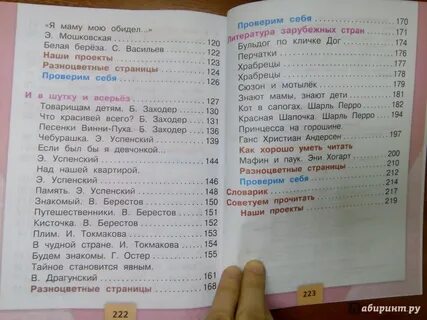 "Я маму мою обидел..."
Э. Мошковская 120
Белая берёза. С. Васильев 122
Наши проекты 123
Разноцветные страницы 124
Проверим себя 126
И в шутку и всерьёз 127
Товарищам детям. Б. Заходер 130
Что красивей всего? Б. Заходер 131
Песенки Винни-Пуха. Б. Заходер 136
Чебурашка. Э. Успенский 139
Если был бы я девчонкой...
Э. Успенский 144
Над нашей квартирой.
Э. Успенский 146
Память. Э. Успенский 148
Знакомый. В. Берестов 150
Путешественники. В. Берестов 151
Кисточка. В. Берестов 152
Плим. И. Токмакова 153
В чудной стране. И. Токмакова 154
Будем знакомы. Г. Остер 155
Тайное становится явным.
В. Драгунский 161
Разноцветные страницы 168
222
Проверим себя 170
Литература зарубежных стран 171
Бульдог по кличке Дог 174
Перчатки 176
Храбрецы 177
Храбрецы 178
Сюзон и мотылёк 179
Знают мамы, знают дети 181
Кот в сапогах. Шарль Перро 182
Красная Шапочка. Шарль Перро 194
Принцесса на горошине.
Ганс Христиан Андерсен 197
Как хорошо уметь читать
Мафин и паук. Эни Хогарт 200
Разноцветные страницы 210
Проверим себя 212
Словарик 214
Советуем прочитать 217
Наши проекты 219
223
абиринт.ру